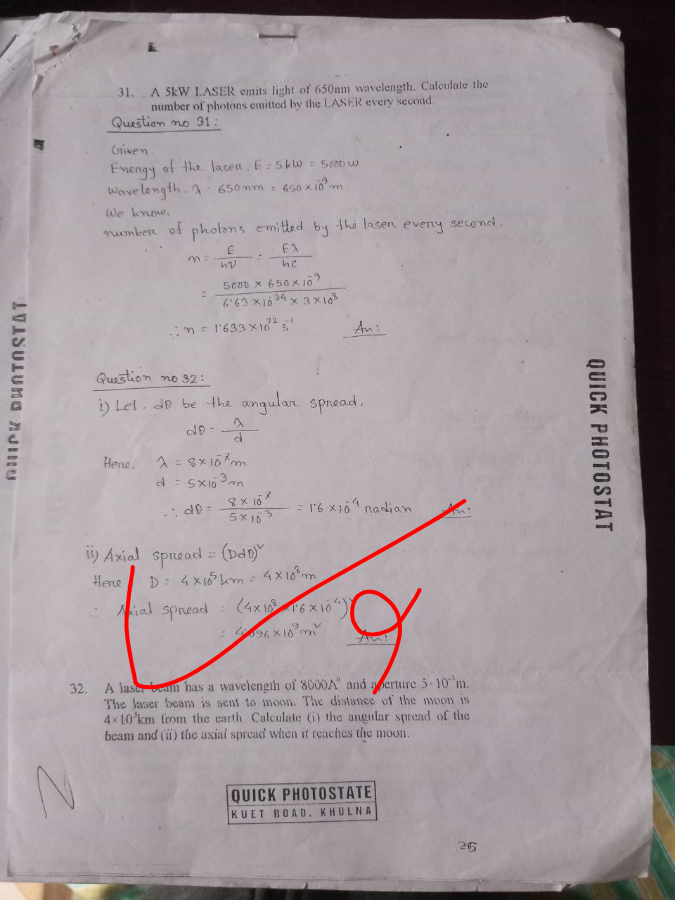 31. A 5kW LASER emits light of 650nm wavelength. Calculate the
number of photons emitted by the LASER every second.
Question no 31:
Given,
Energy of the laser, E = 5kW = 5000 W
wavelength, λ = 650nm = 650×10⁻⁹m
We know,
number of photons emitted by the laser every second.
n = E/hν = Eλ/hc
= 5000 × 650×10⁻⁹ / 6.63×10⁻³⁴ × 3×10⁸
∴ n = 1.633×10²² s⁻¹ An:
Question no 32:
i) Let, dθ be the angular spread,
dθ = λ/d
Here, λ = 8×10⁻⁷m
d = 5×10⁻³m
∴ dθ = 8×10⁻⁷ / 5×10⁻³ = 1.6×10⁻⁴ radian An:
ii) Axial spread = (Ddθ)²
Here D = 4×10⁵km = 4×10⁸m
∴ Axial spread = (4×10⁸×1.6×10⁻⁴)²
= 4.096×10⁹m² An:
9
32. A laser beam has a wavelength of 8000A° and aperture 5×10⁻³m.
The laser beam is sent to moon. The distance of the moon is
4×10⁵km from the earth. Calculate (i) the angular spread of the
beam and (ii) the axial spread when it reaches the moon.
QUICK PHOTOSTATE
KUET ROAD, KHULNA
26
QUICK PHOTOSTAT
QUICK PHOTOSTAT